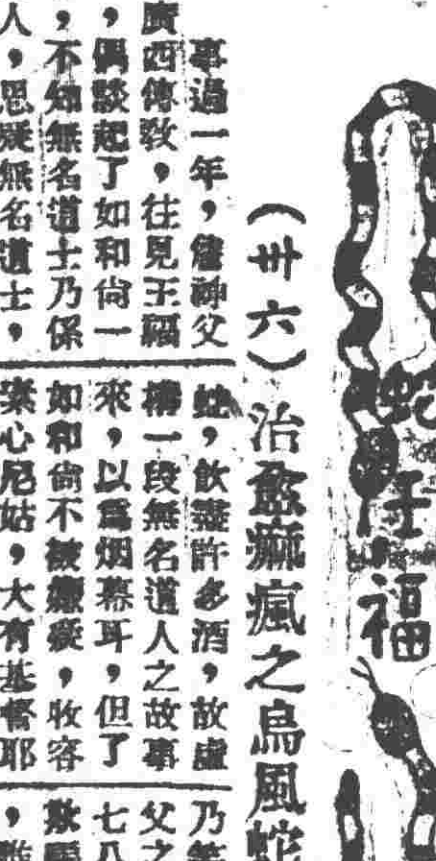 蛇王福
（卅六）治愈痲瘋之烏風蛇
事過一年，詹神父
廣西傳敎，往見王福
，偶談起了如和尙一
，不知無名道士乃係
人，思疑無名道士，
蛇，飲盡許多酒，故虛
構一段無名道人之故事
來，以爲烟幕耳，但了
如和尙不被嫌疑，收容
素心尼姑，大有基督耶
乃
父之
七八
欺
，